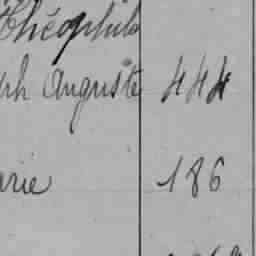 Théophile
ph Auguste 444
arie 186